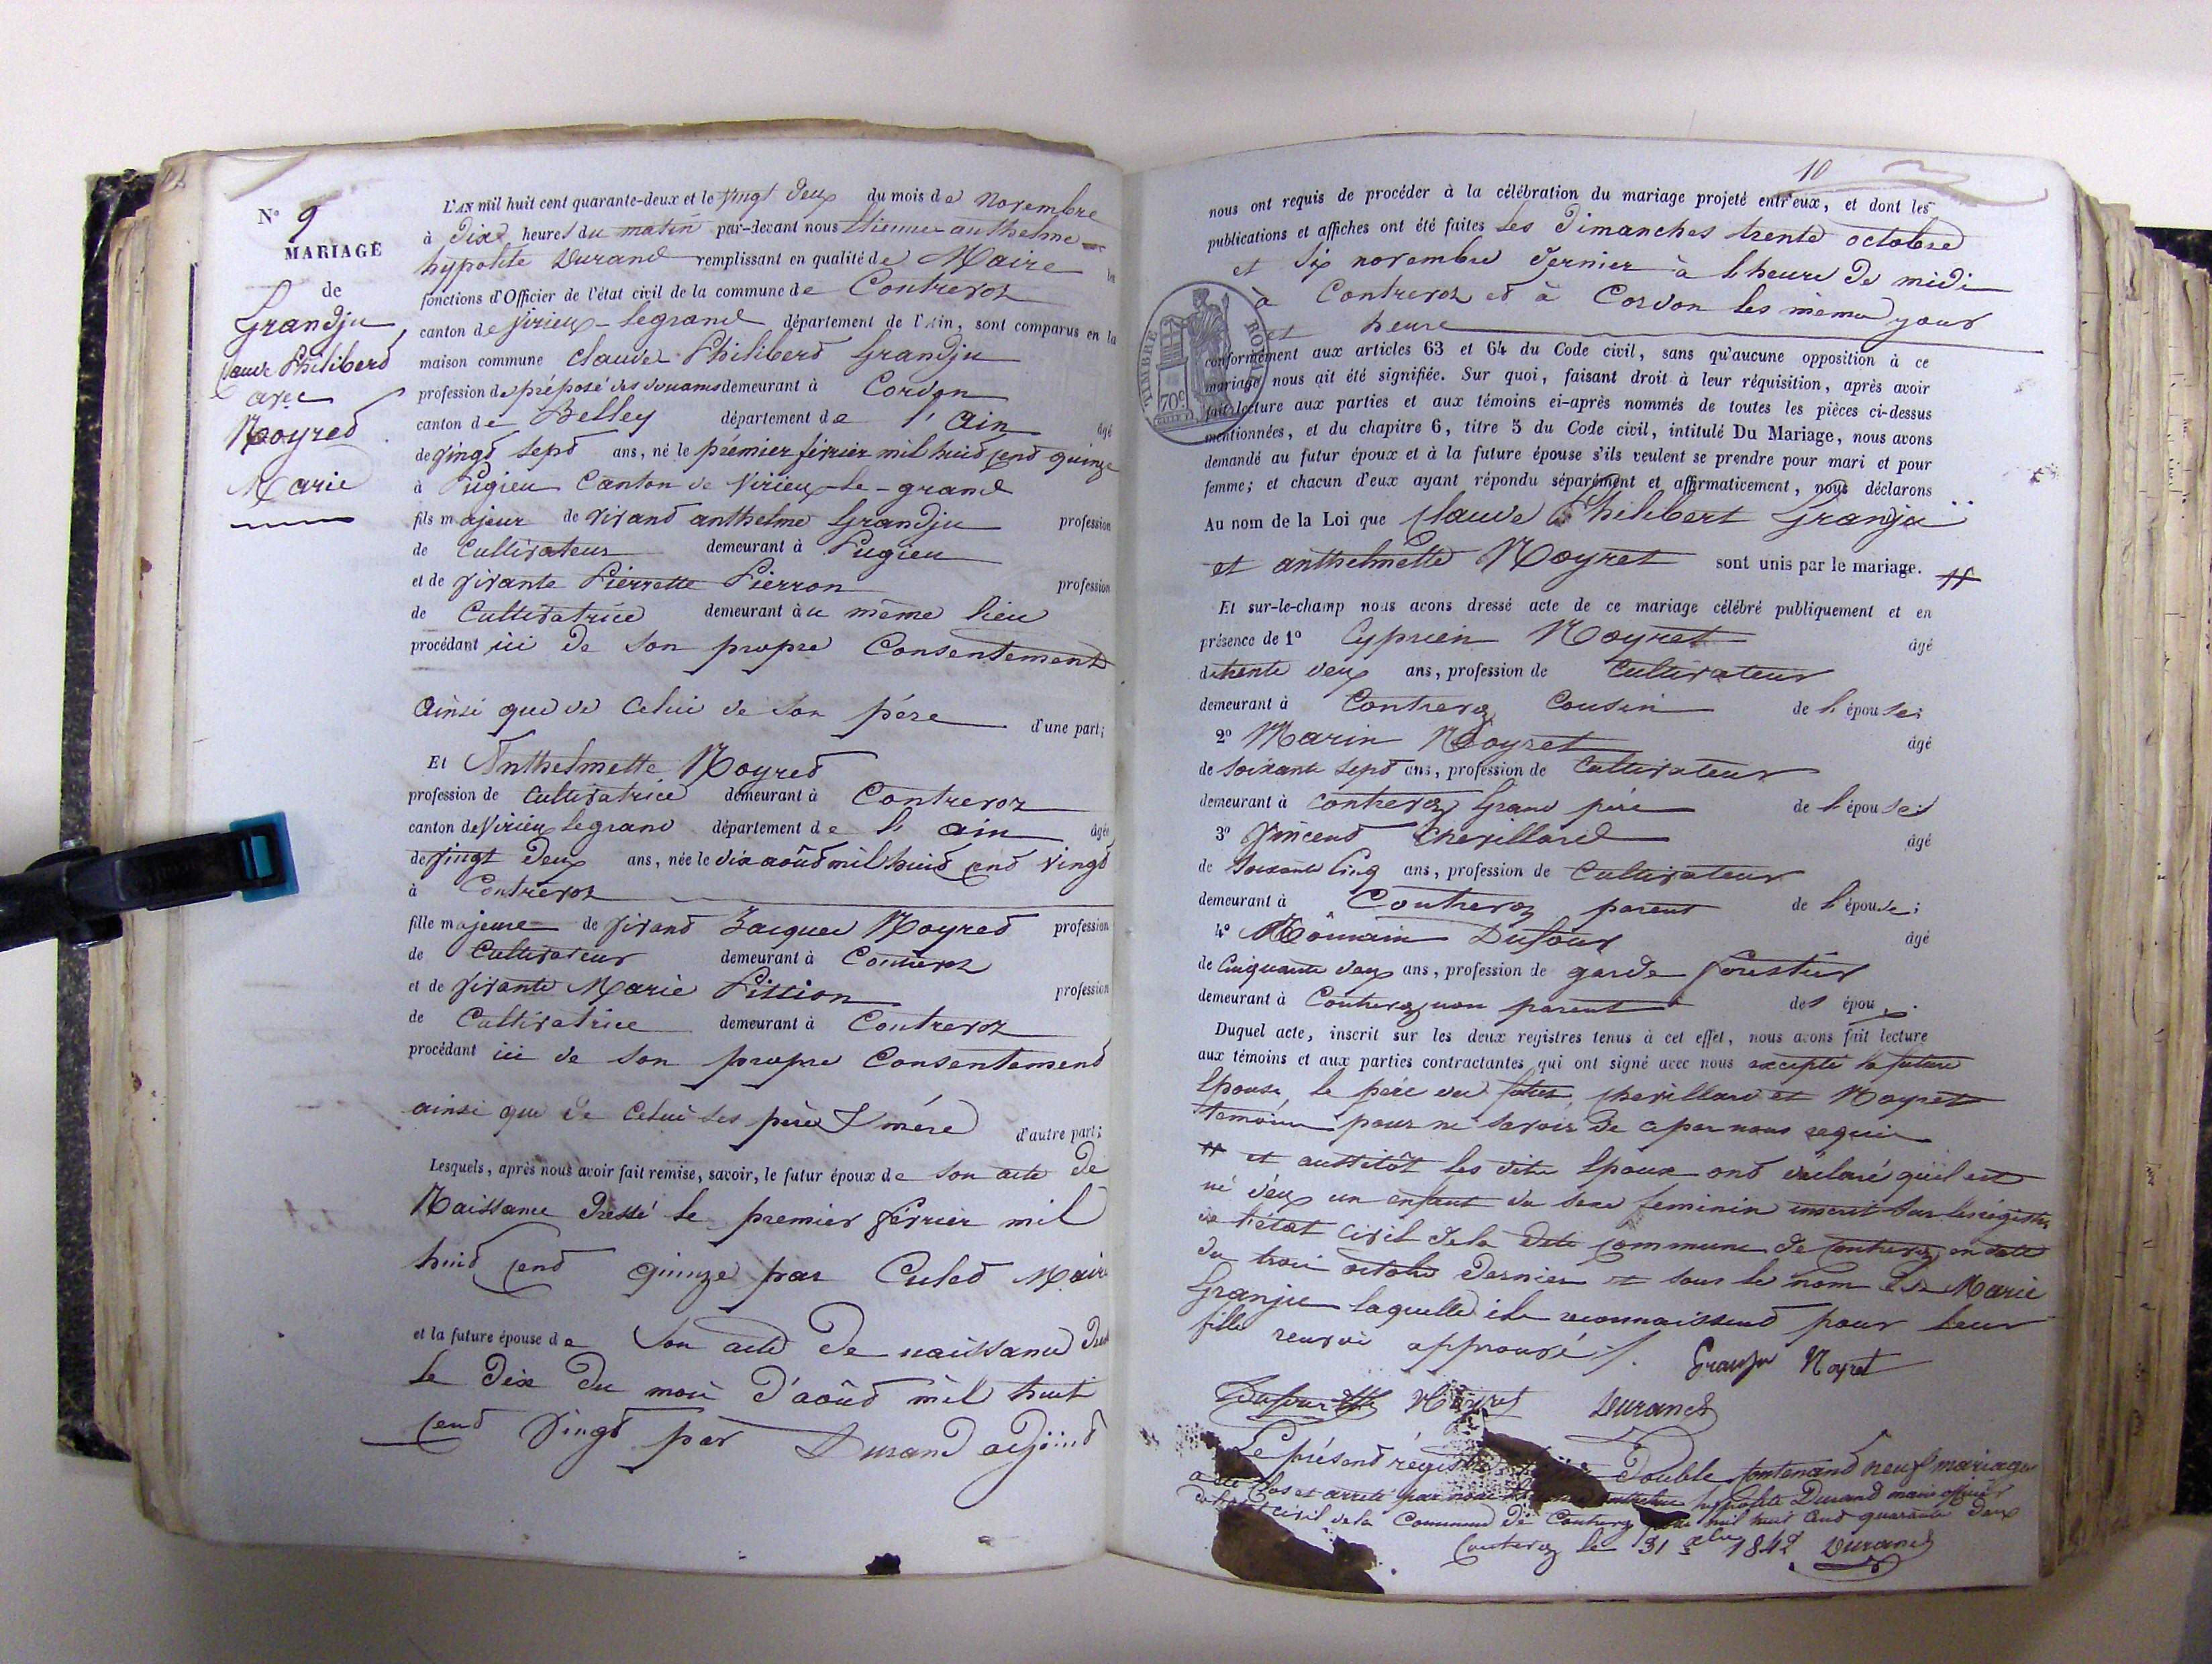 N° 9
MARIAGE
de
Grandju
Claude Philiberd
avec
Noyred
Marie
L'AN mil huit cent quarante-deux et le vingt deux du mois de novembre
à dix heures du matin par-devant nous Etienne anthelme
hypolite Durand remplissant en qualité de Maire les
fonctions d'Officier de l'état civil de la commune de Contrevoz
canton de Virieu-legrand département de l'Ain, sont comparus en la
maison commune Claude Philiberd Grandju
profession de préposé des douanes demeurant à Cordon
canton de Belley département de l'Ain âgé
de vingd sepd ans, né le premier février mil huid cend quinze
à Pugieu Canton de Virieu-le-grand
fils majeur de vivand anthelme Grandju profession
de Cultivateur demeurant à Pugieu
et de vivante Pierrette Pierron profession
de Cultivatrice demeurant au même lieu
procédant ici de son propre Consentement
ainsi que de Celui de son père d'une part;
Et Anthelmette Noyred
profession de Cultivatrice demeurant à Contrevoz
canton de Virieu legrand département de l'ain âgée
de vingt deux ans, née le dix aoûd mil huid cend vingd
à Contrevoz
fille majeure de vivand Jacques Noyred profession
de Cultivateur demeurant à Contrevoz
et de vivante Marie Pittion profession
de Cultivatrice demeurant à Contrevoz
procédant ici de son propre Consentemend
ainsi que de Celui des père & mère d'autre part;
Lesquels, après nous avoir fait remise, savoir, le futur époux de son acte de
Naissance dressé le premier février mil
huid cend quinze par Culed Maire
et la future épouse de son acte de naissance
le dix du mois d'aoûd mil huit
cend vingd par Durand adjoind
10
nous ont requis de procéder à la célébration du mariage projeté entr'eux, et dont les
publications et affiches ont été faites les dimanches trente octobre
et six novembre dernier à l'heure de midi
à Contrevoz et à Cordon les même jour
et heure
TIMBRE ROYAL
70c
conformément aux articles 63 et 64 du Code civil, sans qu'aucune opposition à ce
mariage nous ait été signifiée. Sur quoi, faisant droit à leur réquisition, après avoir
fait lecture aux parties et aux témoins ci-après nommés de toutes les pièces ci-dessus
mentionnées, et du chapitre 6, titre 5 du Code civil, intitulé Du Mariage, nous avons
demandé au futur époux et à la future épouse s'ils veulent se prendre pour mari et pour
femme; et chacun d'eux ayant répondu séparément et affirmativement, nous déclarons
Au nom de la Loi que Claude Philibert Granju
et anthelmette Noyret sont unis par le mariage. #
Et sur-le-champ nous avons dressé acte de ce mariage célébré publiquement et en
présence de 1° Cyprien Noyret âgé
de trente deux ans, profession de Cultivateur
demeurant à Contrevoz Cousin de l'épouse;
2° Marin Noyret âgé
de soixante sepd ans, profession de Cultivateur
demeurant à Contrevoz Grand père de l'épouse;
3° Vincend Chevillard âgé
de soixante Cinq ans, profession de Cultivateur
demeurant à Contrevoz parent de l'épouse;
4° Dufour âgé
de Cinquante deux ans, profession de garde forestier
demeurant à Contrevoz non parent des épou x.
Duquel acte, inscrit sur les deux registres tenus à cet effet, nous avons fait lecture
aux témoins et aux parties contractantes qui ont signé avec nous excepté la future
épouse, le père du futur, Chevillard et Noyret
temoins pour ne savoir de ce par nous requis
# et aussitôt les dits époux ond déclaré qu'il est
né d'eux un enfant du sexe feminin inscrit sur les registres
de l'état civil de la dite commune de Contrevoz en date
du trois octobre dernier et sous le nom de Marie
Granju laquelle ils reconnaissend pour leur
fille renvoi approuvé /.
Granju Noyret
Dufour Noyret Durand
Le présend régistre double contenand neuf mariages
a été clos et arrêté par nous anthelme hypolite Durand maire officier
de l'état civil de la Commune de Contrevoz mil huit cend quarante deux
Contrevoz le 31 xbre 1842 Durand